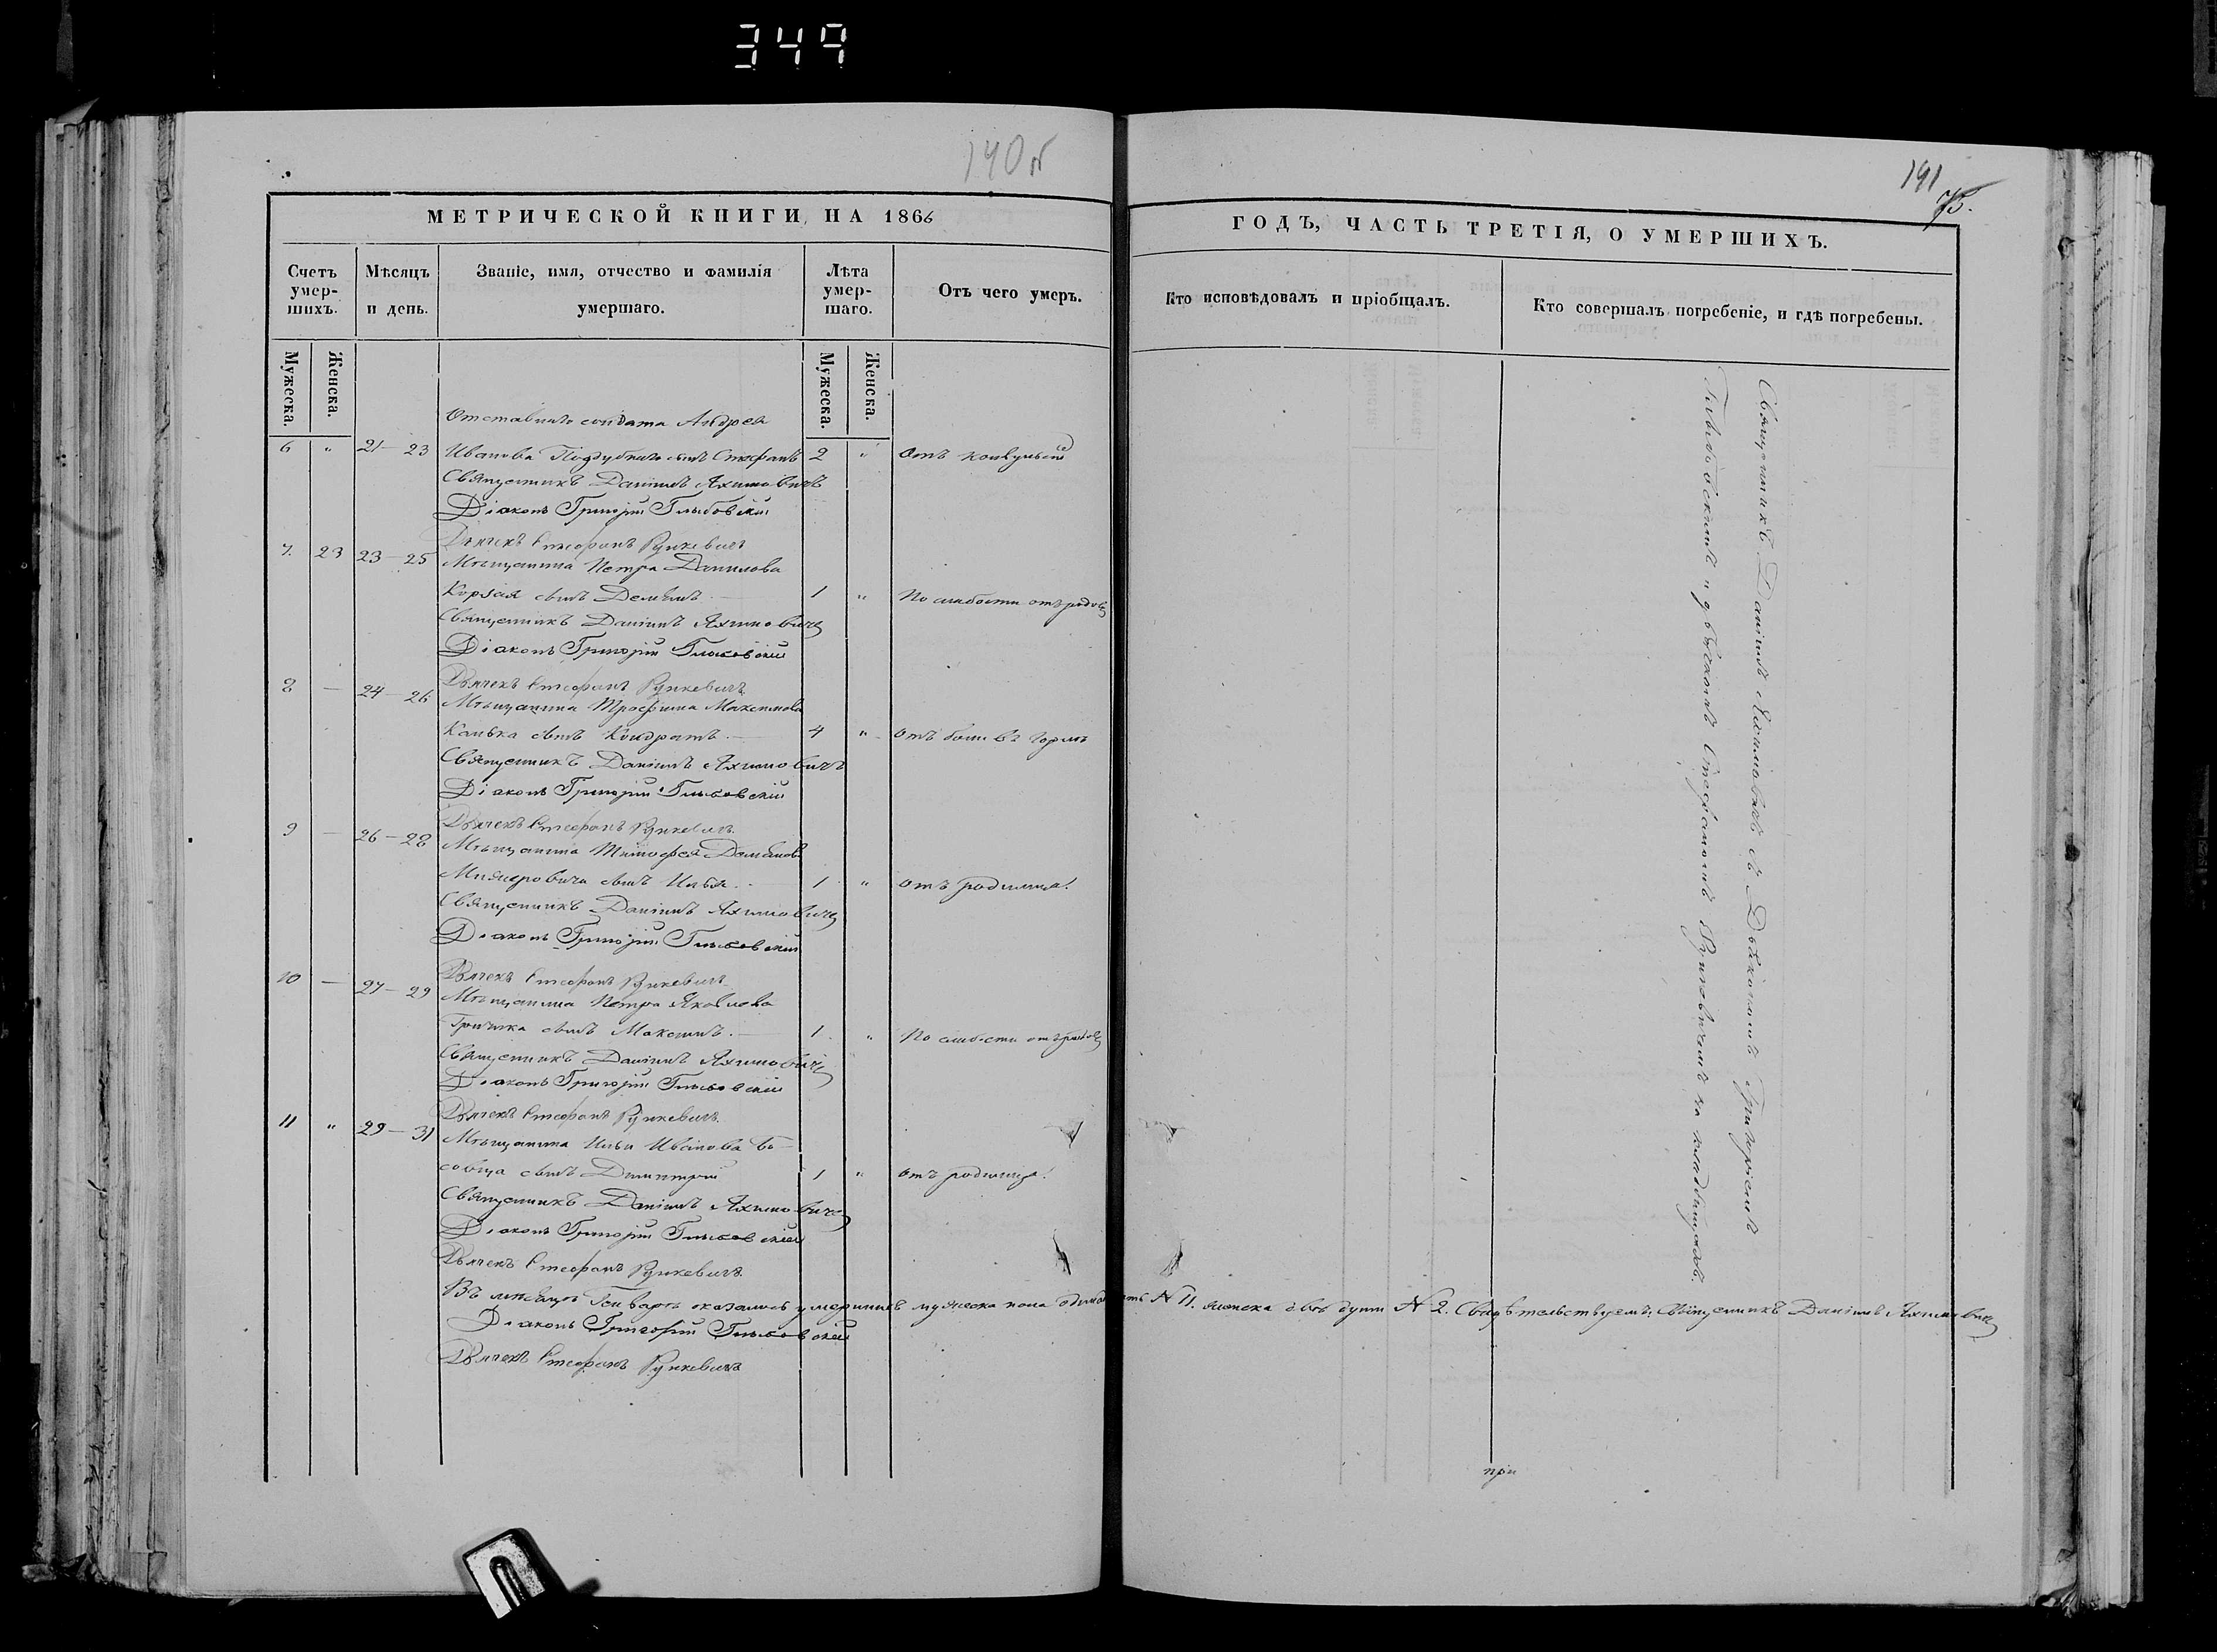 349
140 об
191
75.
МЕТРИЧЕСКОЙ КНИГИ, НА 1866
ГОДЪ, ЧАСТЬ ТРЕТІЯ, О УМЕРШИХЪ.
Счетъ умер-шихъ.
Мѣсяцъ и день.
Званіе, имя, отчество и фамилія умершаго.
Лѣта умер-шаго.
Отъ чего умеръ.
Кто исповѣдовалъ и пріобщалъ.
Кто совершалъ погребеніе, и гдѣ погребены.
Мужеска.
Женска.
Мужеска.
Женска.
Отставнаго солдата Андрея
6 " 21—23 Иванова сынъ Стефанъ 2 " Отъ конвульсій
Священникъ Даніилъ Яхимовичъ
Діаконъ Григорій Глыбовскій
Дьячекъ Стефанъ Рункевичъ
7. 23 23—25 Мѣщанина Петра Данилова
Корзая сынъ Демьянъ 1 " По слабости отъ родовъ
Священникъ Даніилъ Яхимовичъ
Діаконъ Григорій Глыбовскій
Дьячекъ Стефанъ Рункевичъ
8 — 24—26 Мѣщанина Трофима Максимова
сынъ Кондратъ. 4 " отъ боли въ горлѣ
Священникъ Даніилъ Яхимовичъ
Діаконъ Григорій Глыбовскій
Дьячекъ Стефанъ Рункевичъ
9 — 26—28 Мѣщанина Тимофея Демьянова
сынъ Илья. 1 " отъ родимца.
Священникъ Даніилъ Яхимовичъ
Діаконъ Григорій Глыбовскій
Дьячекъ Стефанъ Рункевичъ
10 — 27—29 Мѣщанина Петра Яковлева
сынъ Максимъ. 1 " По слабости отъ родовъ
Священникъ Даніилъ Яхимовичъ
Діаконъ Григорій Глыбовскій
Дьячекъ Стефанъ Рункевичъ
11 " 29—31 Мѣщанина Ильи Иванова
сынъ Димитрій 1 " отъ родимца.
Священникъ Даніилъ Яхимовичъ
Діаконъ Григорій Глыбовскій
Дьячекъ Стефанъ Рункевичъ
Въ мѣсяцѣ Генварѣ оказалось умершихъ мужеска пола одинадцать № 11. женска двѣ души № 2. Свидѣтельствуемъ: Священникъ Даніилъ Яхимовичъ
Діаконъ Григорій Глыбовскій
Дьячекъ Стефанъ Рункевичъ
Священникъ Даніилъ Яхимовичъ съ Діакономъ Григоріемъ
Глыбовскимъ и дьячкомъ Стефаномъ Рункевичемъ на кладбищахъ.
при